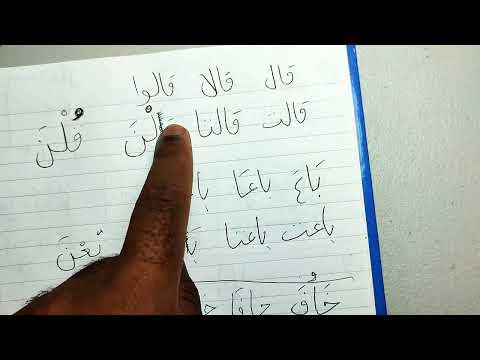 قال قالا قالوا
قالت قالتا قُلْنَ
بَاعَ باعَا
باعت باعتا بعْنَ
خافَا